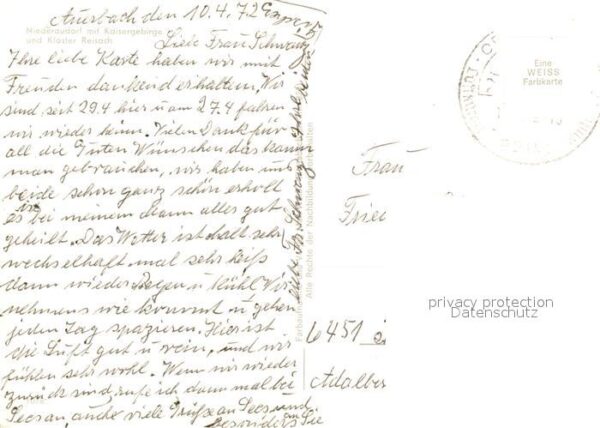 Auerbach den 10.4.72
Niederaudorf mit Kaisergebirge
und Kloster Reisach
Liebe Frau Schwenz
Ihre liebe Karte haben wir mit
Freuden dankend erhalten. Wir
sind seit 29.4 hier u am 27.4 fahren
wir wieder heim. Vielen Dank für
all die Guten Wünschen das kann
man gebrauchen, wir haben uns
beide schon ganz schön erholt
es ist bei meinem Mann alles gut
geheilt. Das Wetter ist halt sehr
wechselhaft mal sehr heiß
dann wieder Regen u Kühl Wir
nehmens wie kommt u gehen
jeden Tag spazieren. Hier ist
die Luft gut u rein, und wir
fühlen sehr wohl. Wenn wir wieder
zurück sind, rufe ich dann mal bei
an, auch viele Grüße an und
besonders an Sie
liebe Fr. Schwenz
Alle Rechte der Nachbildung vorbehalten
Eine
WEISS
Farbkarte
Frau
6451
Adalber
privacy protection
Datenschutz